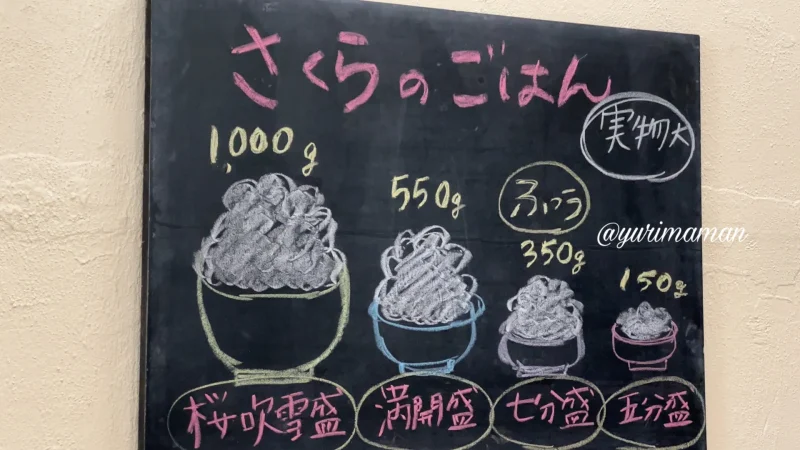 さくらのごはん
実物大
1,000g
550g
ふつう
350g
150g
@yurimaman
桜吹雪盛
満開盛
七分盛
五分盛